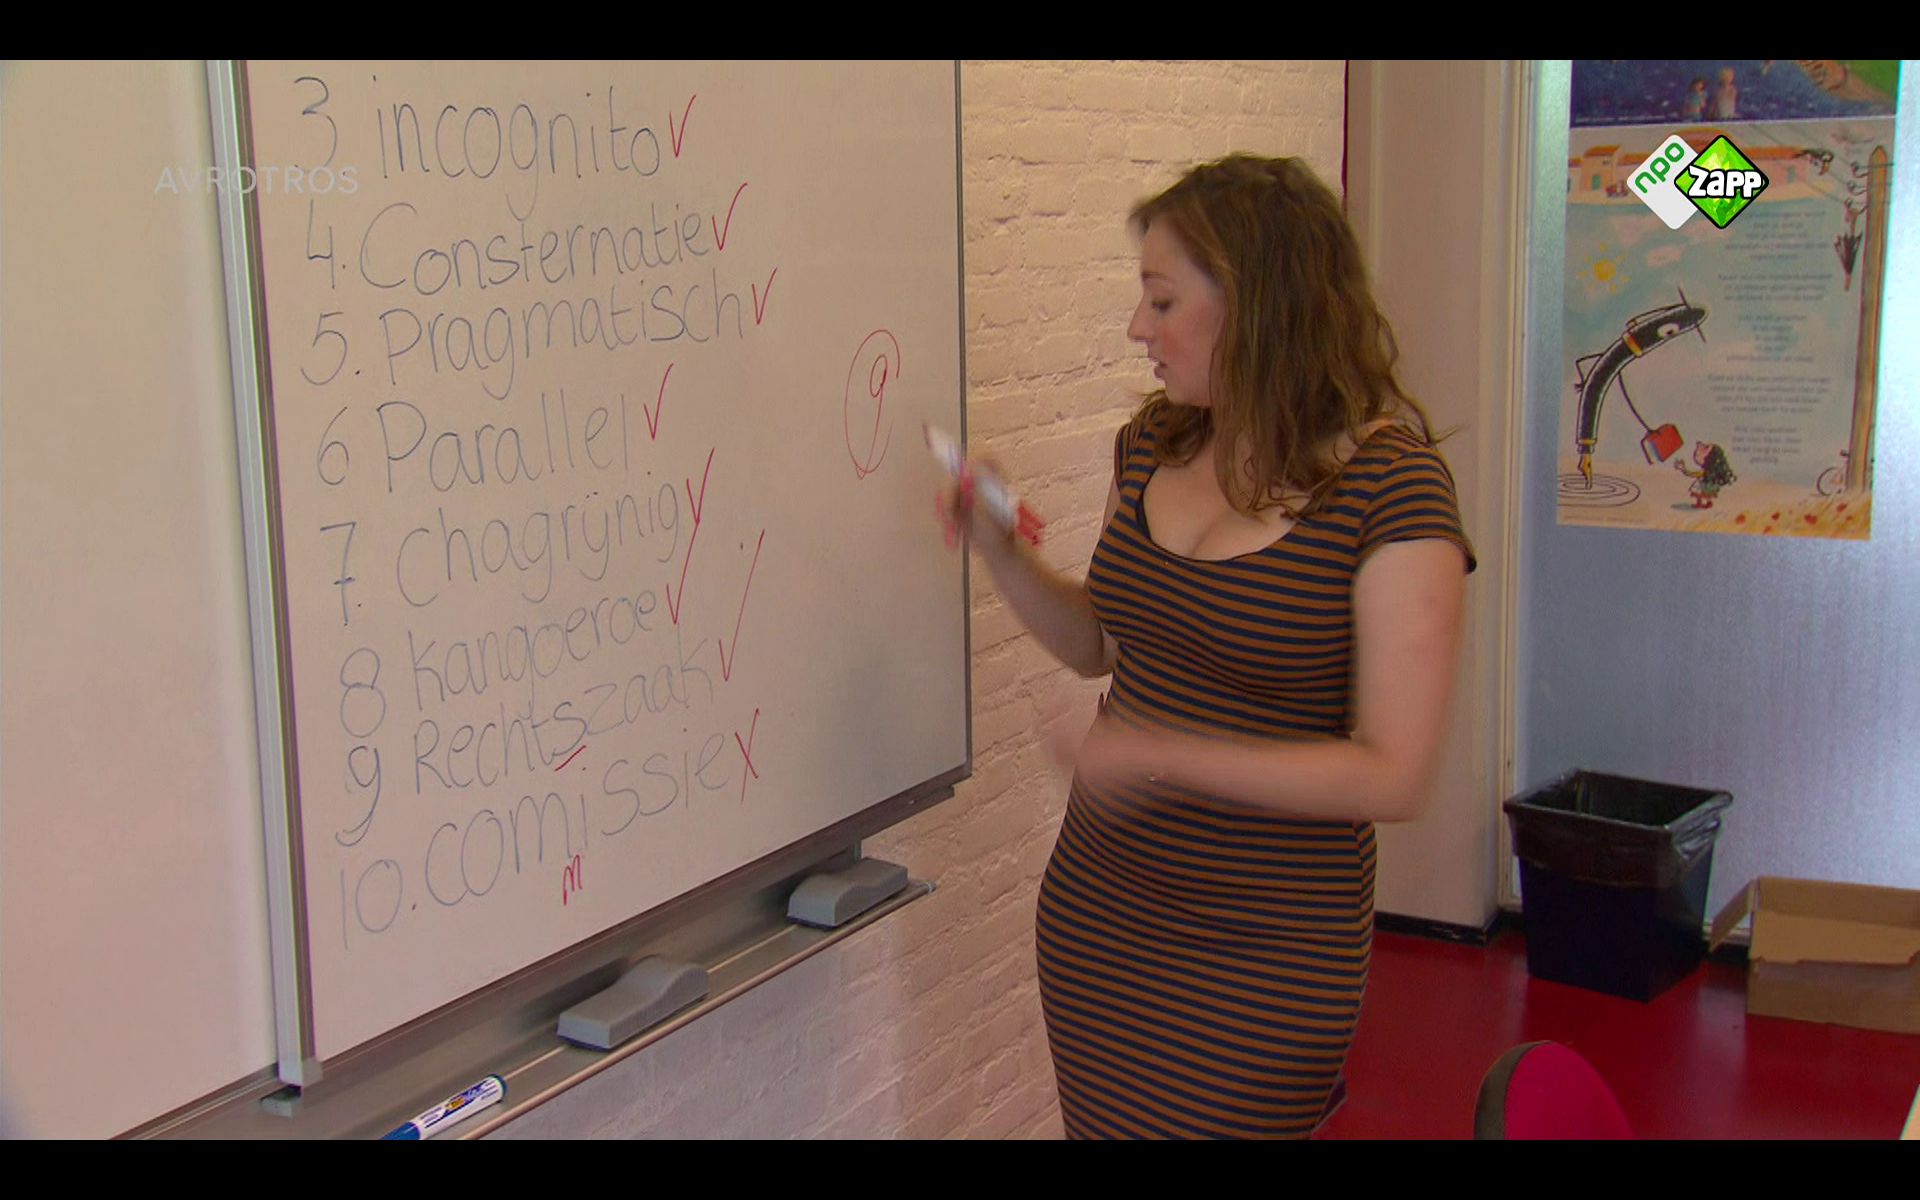 3 incognito
AVROTROS
4. Consternatie
5. Pragmatisch
6 Parallel
9
7. Chagrijnig
8 kangoeroe
9 Rechtszaak
10. comissie
m
npo
zapp